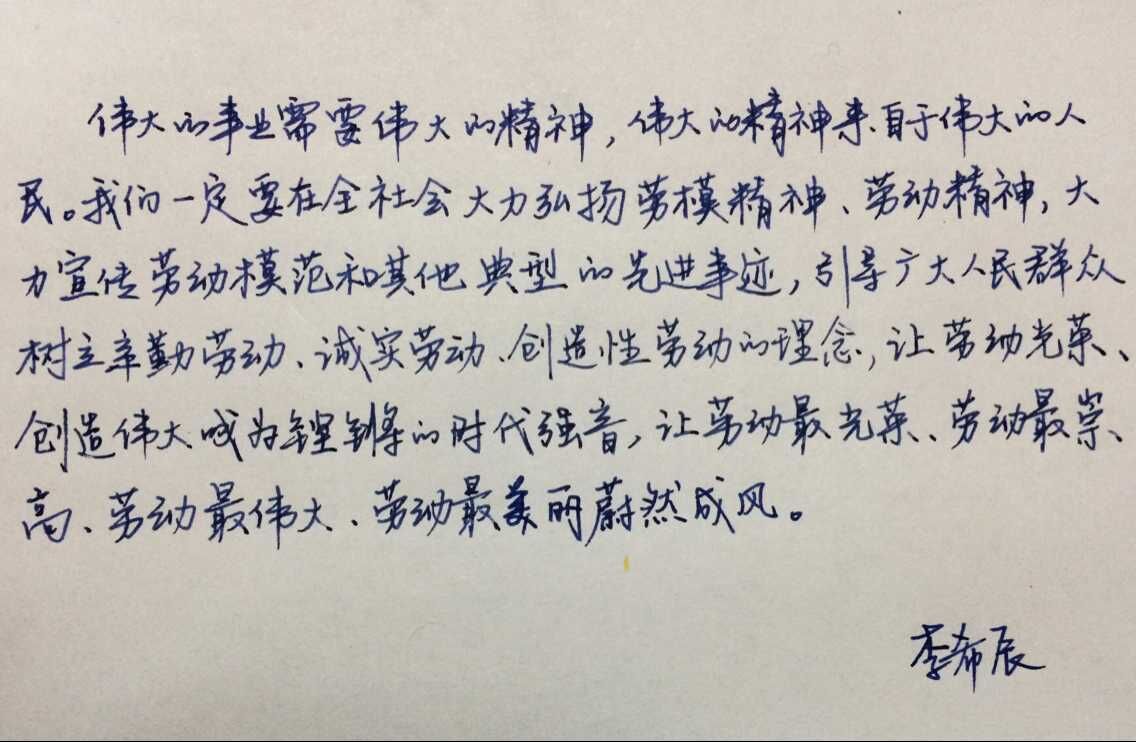 伟大的事业需要伟大的精神，伟大的精神来自于伟大的人
民。我们一定要在全社会大力弘扬劳模精神、劳动精神，大
力宣传劳动模范和其他典型的先进事迹，引导广大人民群众
树立辛勤劳动、诚实劳动、创造性劳动的理念，让劳动光荣、
创造伟大成为铿锵的时代强音，让劳动最光荣、劳动最崇
高、劳动最伟大、劳动最美丽蔚然成风。
李希辰